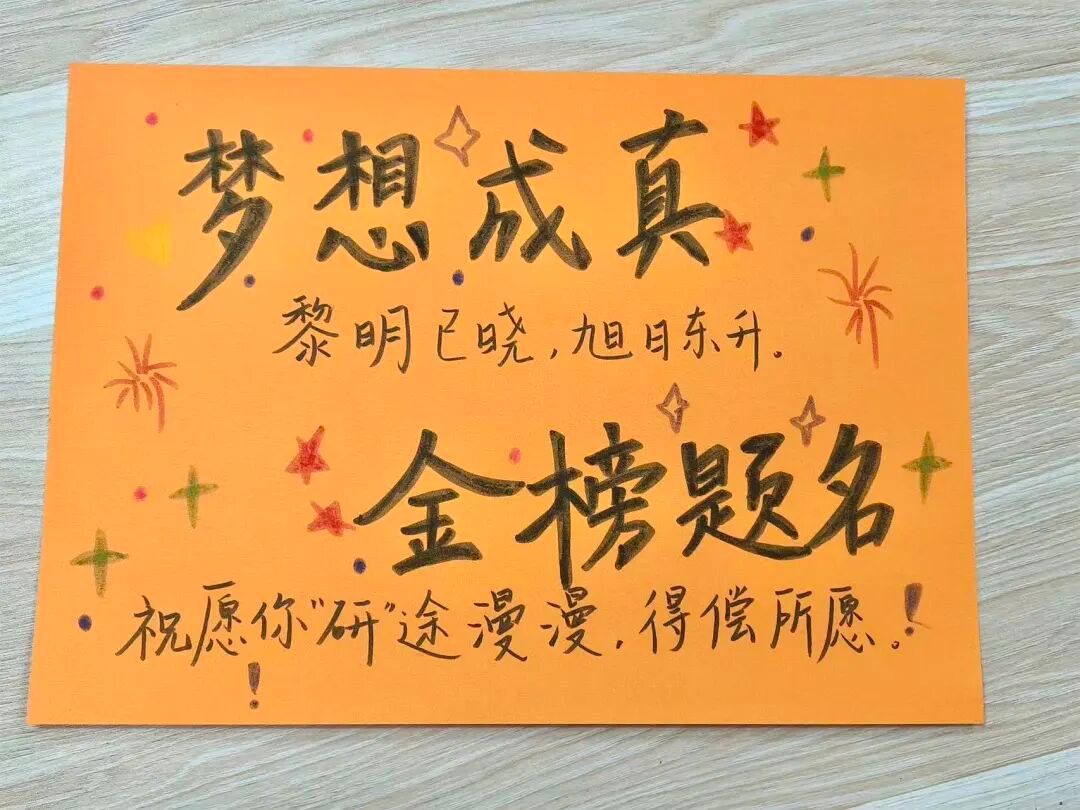 梦想成真
黎明已晓,旭日东升。
金榜题名
祝愿你"研"途漫漫,得偿所愿。!
!